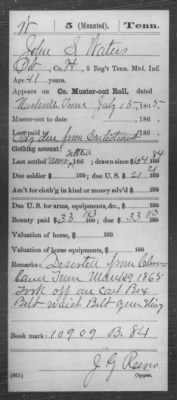 W | 5 (Mounted). | Tenn.
John S. Waters
Pvt, Co. H, 5 Reg't Tenn. Mtd. Inf.
Age 41 years.
Appears on Co. Muster-out Roll, dated
Nashville Tenn July 15, 1865.
Muster-out to date , 186 .
Last paid to , 186 .
Clothing account:
Last settled never, 186 ; drawn since $64
Due soldier $ ; due U. S. $ 21
Am't for cloth'g in kind or money adv'd $
Due U. S. for arms, equipments, &c., $
Bounty paid $ 33 ; due $ 33
Valuation of horse, $
Valuation of horse equipments, $
Remarks: Deserted from
Tenn 1865
Took off an Cart Box
Belt waist Belt gun Sling
Book mark: 10909 B. 84
J G
(361) Copyist.